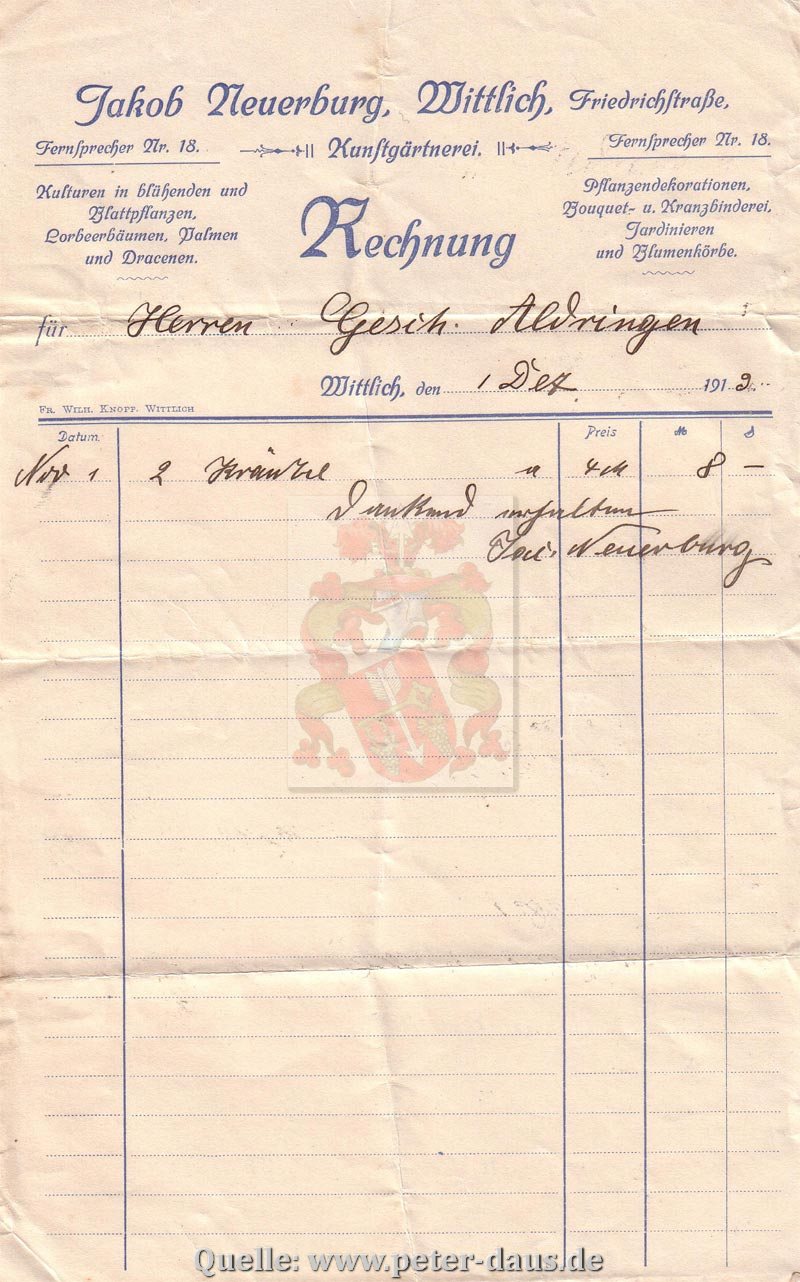 Jakob Neuerburg, Wittlich, Friedrichstraße,
Fernsprecher Nr. 18.
Kunstgärtnerei.
Fernsprecher Nr. 18.
Kulturen in blühenden und
Blattpflanzen,
Lorbeerbäumen, Palmen
und Dracenen.
Rechnung
Pflanzendekorationen,
Bouquet- u. Kranzbinderei,
Jardinieren
und Blumenkörbe.
für Herren Gesch. Aldringen
Wittlich, den 1 Dez 1913.
Fr. Wilh. Knopp. Wittlich
Datum. Preis M ₰
Nov 1 2 Kränze a 4 M 8 —
Dankend erhalten
Jac. Neuerburg
Quelle: www.peter-daus.de